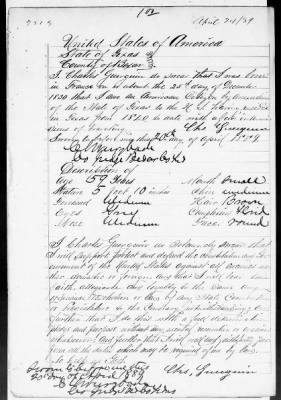 April 24/89
United States of America
State of Texas
County of Bexar
I Charles Guerguin do swear that I was born
in France on or about the 25th day of December
1830 that I am an American Citizen by annexation
of the State of Texas to the U. S. having resided
in Texas from 1840 to date with a few intermissions
of traveling Chs Guerguin
Sworn to before me this 20th day of April 1889
Description of
Age 59 Years Mouth small
Stature 5 feet 10 inches Chin medium
Forehead Medium Hair Brown
Eyes Grey Complexion
Nose Medium Face round
I Charles Guerguin do solemnly swear that
I will support, protect and defend the Constitution and Government
of the United States against all enemies
whether domestic or foreign; and that I will bear true
faith, allegiance and loyalty to the same, any
ordinance, resolution or law of any State, Convention
or Legislature to the contrary notwithstanding; and
further that I do this with a full determination
pledge and purpose without any mental reservation or evasion
whatsoever; and further that I will well and faithfully perform
all the duties which may be required of me by law.
So help me God
Chs. Guerguin
Sworn to before me this
20 day of April 1889